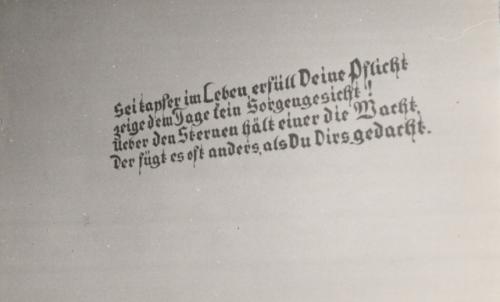 Sei tapfer im Leben, erfüll Deine Pflicht
zeige dem Tage kein Sorgengesicht!
Ueber den Sternen hält einer die Wacht,
Der fügt es oft anders, als Du Dirs gedacht.